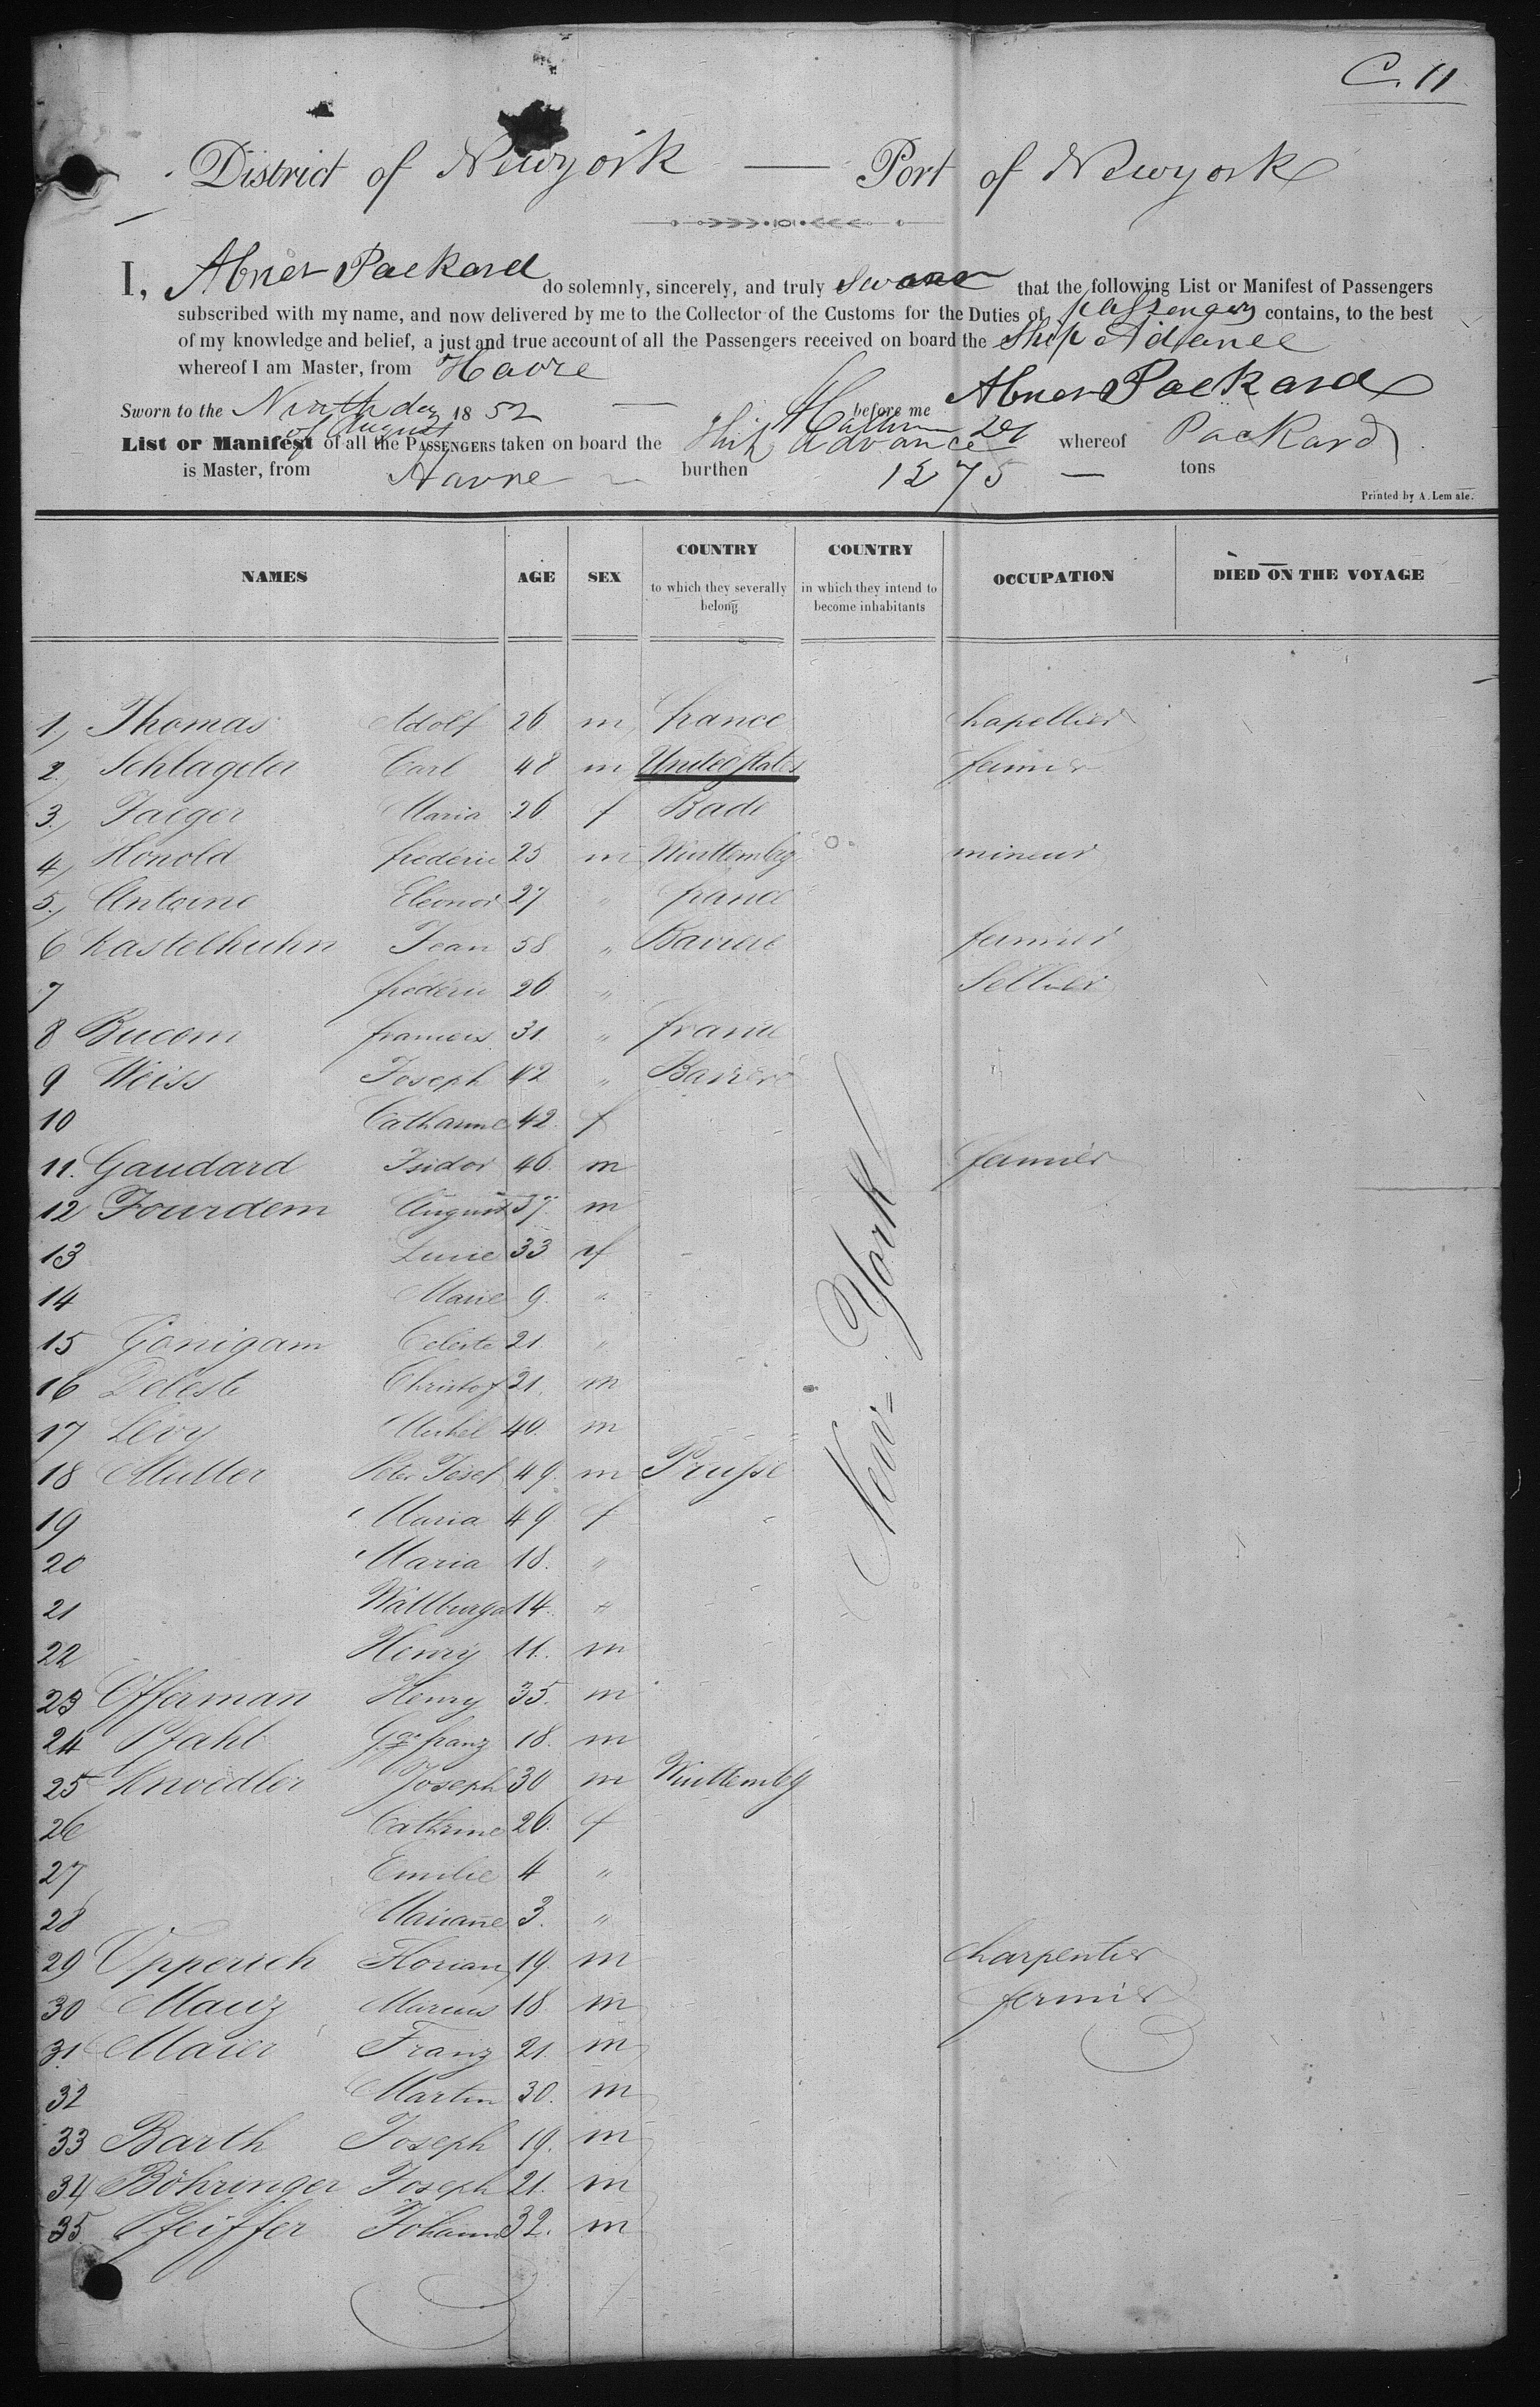 C. 11
District of Newyork — Port of Newyork
I, Abner Packard do solemnly, sincerely, and truly that the following List or Manifest of Passengers
subscribed with my name, and now delivered by me to the Collector of the Customs for the Duties of passengers contains, to the best
of my knowledge and belief, a just and true account of all the Passengers received on board the Ship Advance
whereof I am Master, from Havre
Abner Packard
Sworn to the Ninth day of August 1852 — before me
List or Manifest of all the PASSENGERS taken on board the Ship Advance whereof Packard
is Master, from Havre burthen 1275 — tons
Printed by A. Lemale.
NAMES AGE SEX COUNTRY to which they severally belong COUNTRY in which they intend to become inhabitants OCCUPATION DIED ON THE VOYAGE
1, Thomas Adolf 26 m france chapellier
2, Schlageter Carl 48 m United States fermier
3, Jaeger Maria 26 f Bade
4, Honold frédéric 25 m Wurttemberg mineur
5, Antoine Eleonor 27 " france
6 Kastelhuhn Jean 58 " Baviere fermier
7 frédéric 26 " Sellier
8 Bucom francois 31 " france
9 Weiss Joseph 42 " Baviere
10 Catharine 42 f
11. Gaudard Isidor 46 m fermier
12 Jourdem August 37 m
13 Lucie 33 f
14 Marie 9 "
15 Gonigam Celeste 21 "
16 Deleste Christof 21 m
17 Lévy Michel 40 m
18 Muller Peter Josef 49 m Prusse
19 Maria 49 f
20 Maria 18 "
21 Wallburga 14 "
22 Henry 11 m
23 Offermañ Henry 35 m
24 Pfahl franz 18 m
25 Knoedler Joseph 30 m Wurttembg
26 Cathrine 26 f
27 Emilie 4 "
28 Mariañe 3 "
29 Opperich Florian 19 m charpentier
30 Mauz Marcus 18 m fermier
31 Maier Franz 21 m
32 Martin 30 m
33 Barth Joseph 19 m
34 Böhringer Joseph 21 m
35 Pfeiffer Johann 32 m
New-York